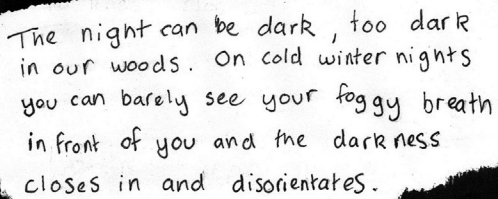 The night can be dark, too dark
in our woods. On cold winter nights
you can barely see your foggy breath
in front of you and the darkness
closes in and disorientates.